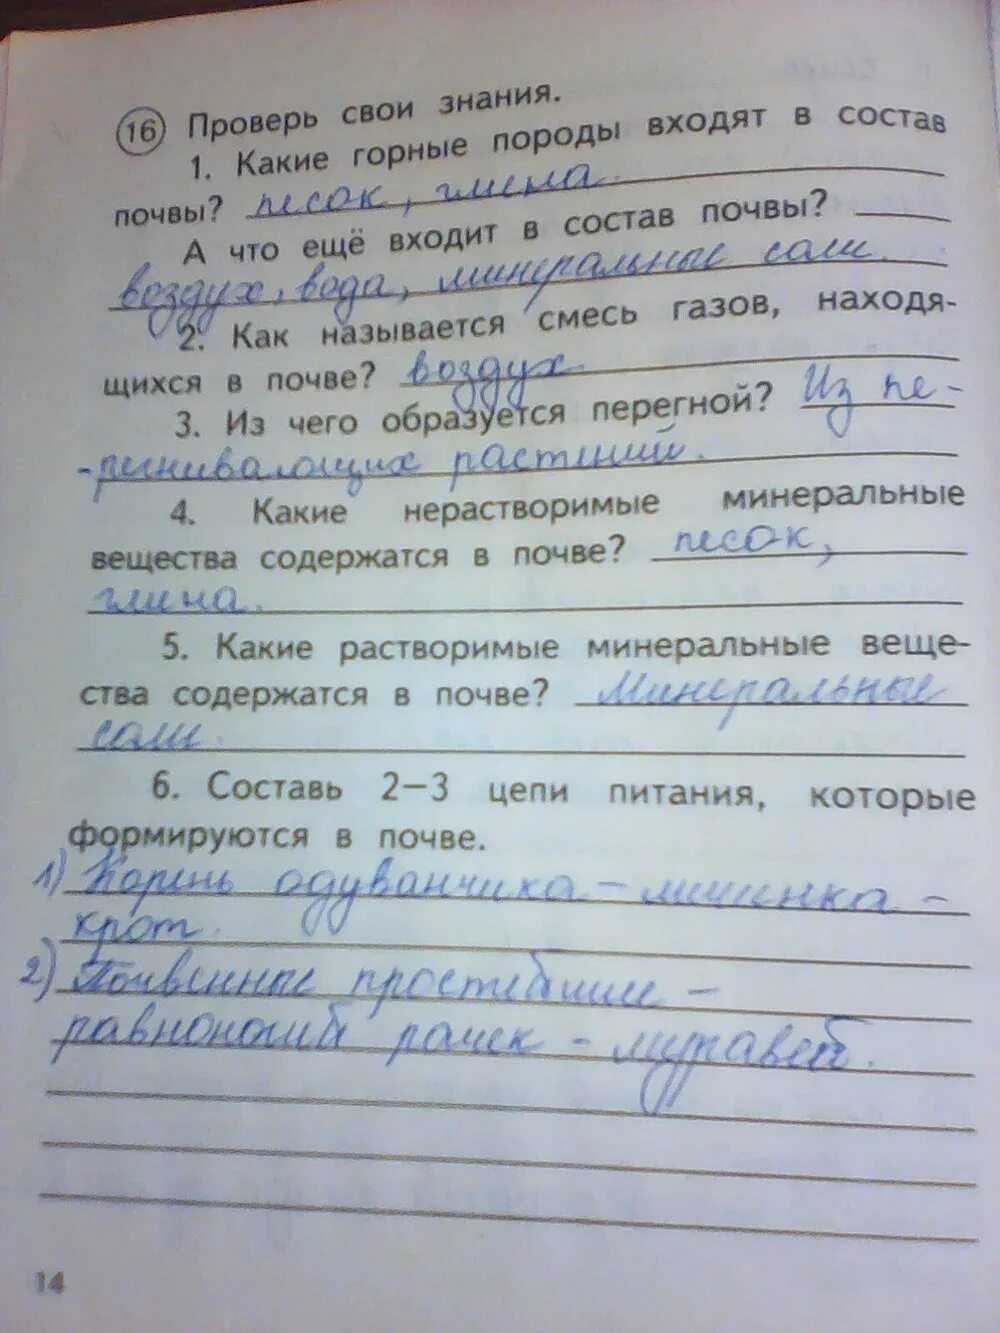 16 Проверь свои знания.
1. Какие горные породы входят в состав
почвы? песок, глина.
А что ещё входит в состав почвы?
воздух, вода, минеральные соли.
2. Как называется смесь газов, находя-
щихся в почве? воздух.
3. Из чего образуется перегной? Из пе-
-регнивающих растений.
4. Какие нерастворимые минеральные
вещества содержатся в почве? песок,
глина.
5. Какие растворимые минеральные веще-
ства содержатся в почве? Минеральные
соли.
6. Составь 2–3 цепи питания, которые
формируются в почве.
1) Корень одуванчика – личинка –
крот.
2) Почвенные простейшие –
равноногий рачек – муравей.
14